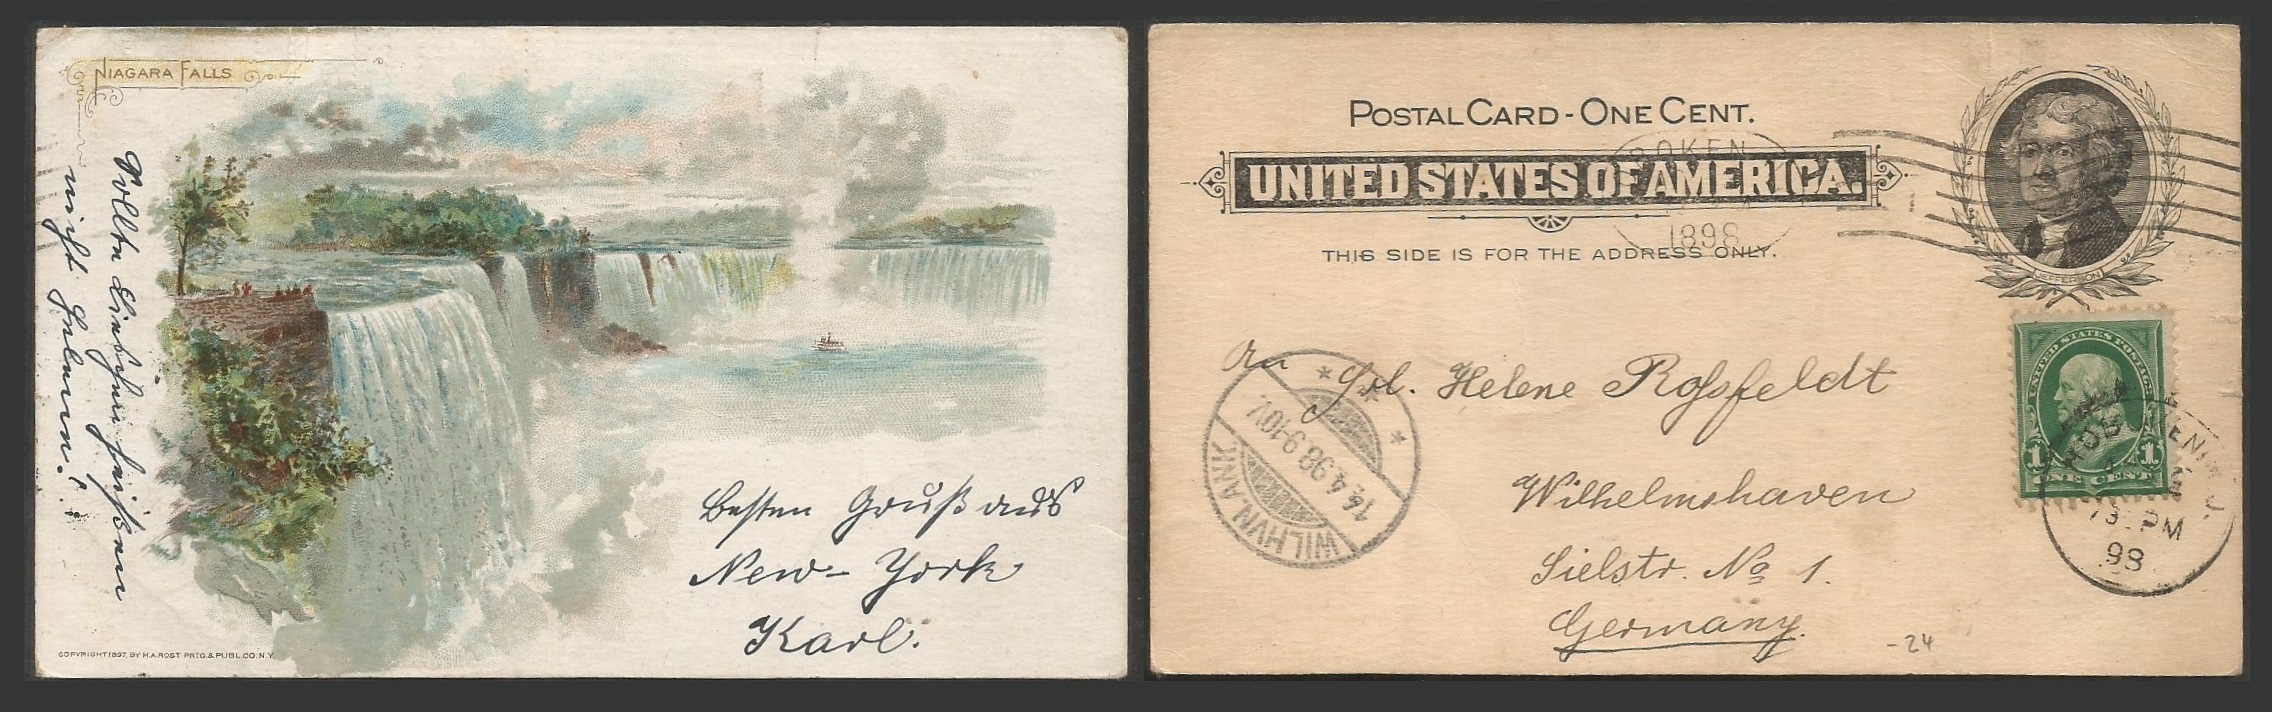 NIAGARA FALLS
Wollte Einschreiben
nicht gehen!
Besten Gruß aus
New-York
Karl.
COPYRIGHT 1897, BY H.A.ROST PRTG.& PUBL.CO.N.Y.
POSTAL CARD - ONE CENT.
UNITED STATES OF AMERICA.
THIS SIDE IS FOR THE ADDRESS ONLY.
JEFFERSON
OKEN
1898
UNITED STATES POSTAGE
1 1
ONE CENT
HOBOKEN N.J.
PM
98
An Frl. Helene Rossfeldt
Wilhelmshaven
Sielstr. No 1.
Germany.
WILHVN ANK
16.4.98.9-10V.
-24